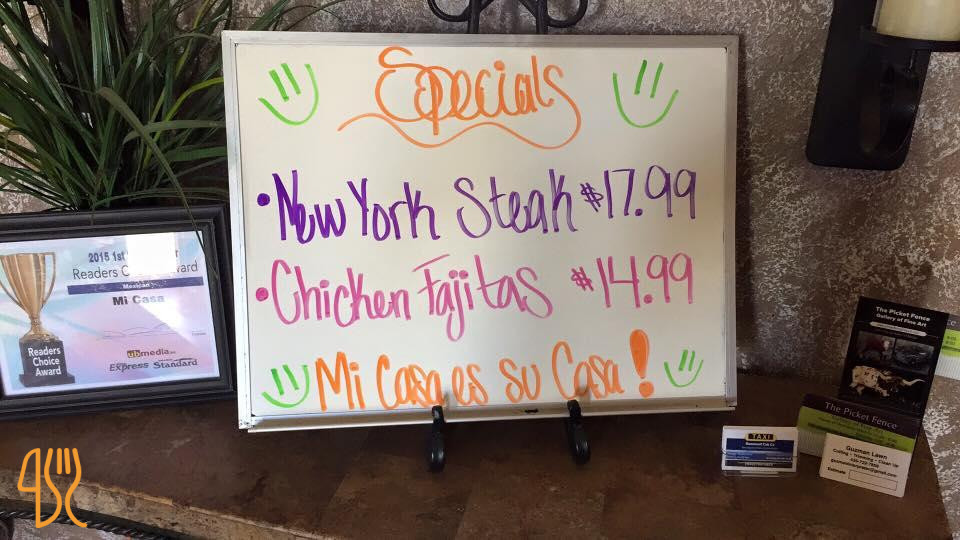 Specials
• New York Steak $17.99
• Chicken Fajitas $14.99
Mi Casa es su Casa!
2015 1st
Readers Award
Mexican
Mi Casa
Readers
Choice
Award
ubmedia
Express Standard
TAXI
The Picket Fence
Gallery of Fine Art
The Picket Fence
Guzman Lawn
Estimate